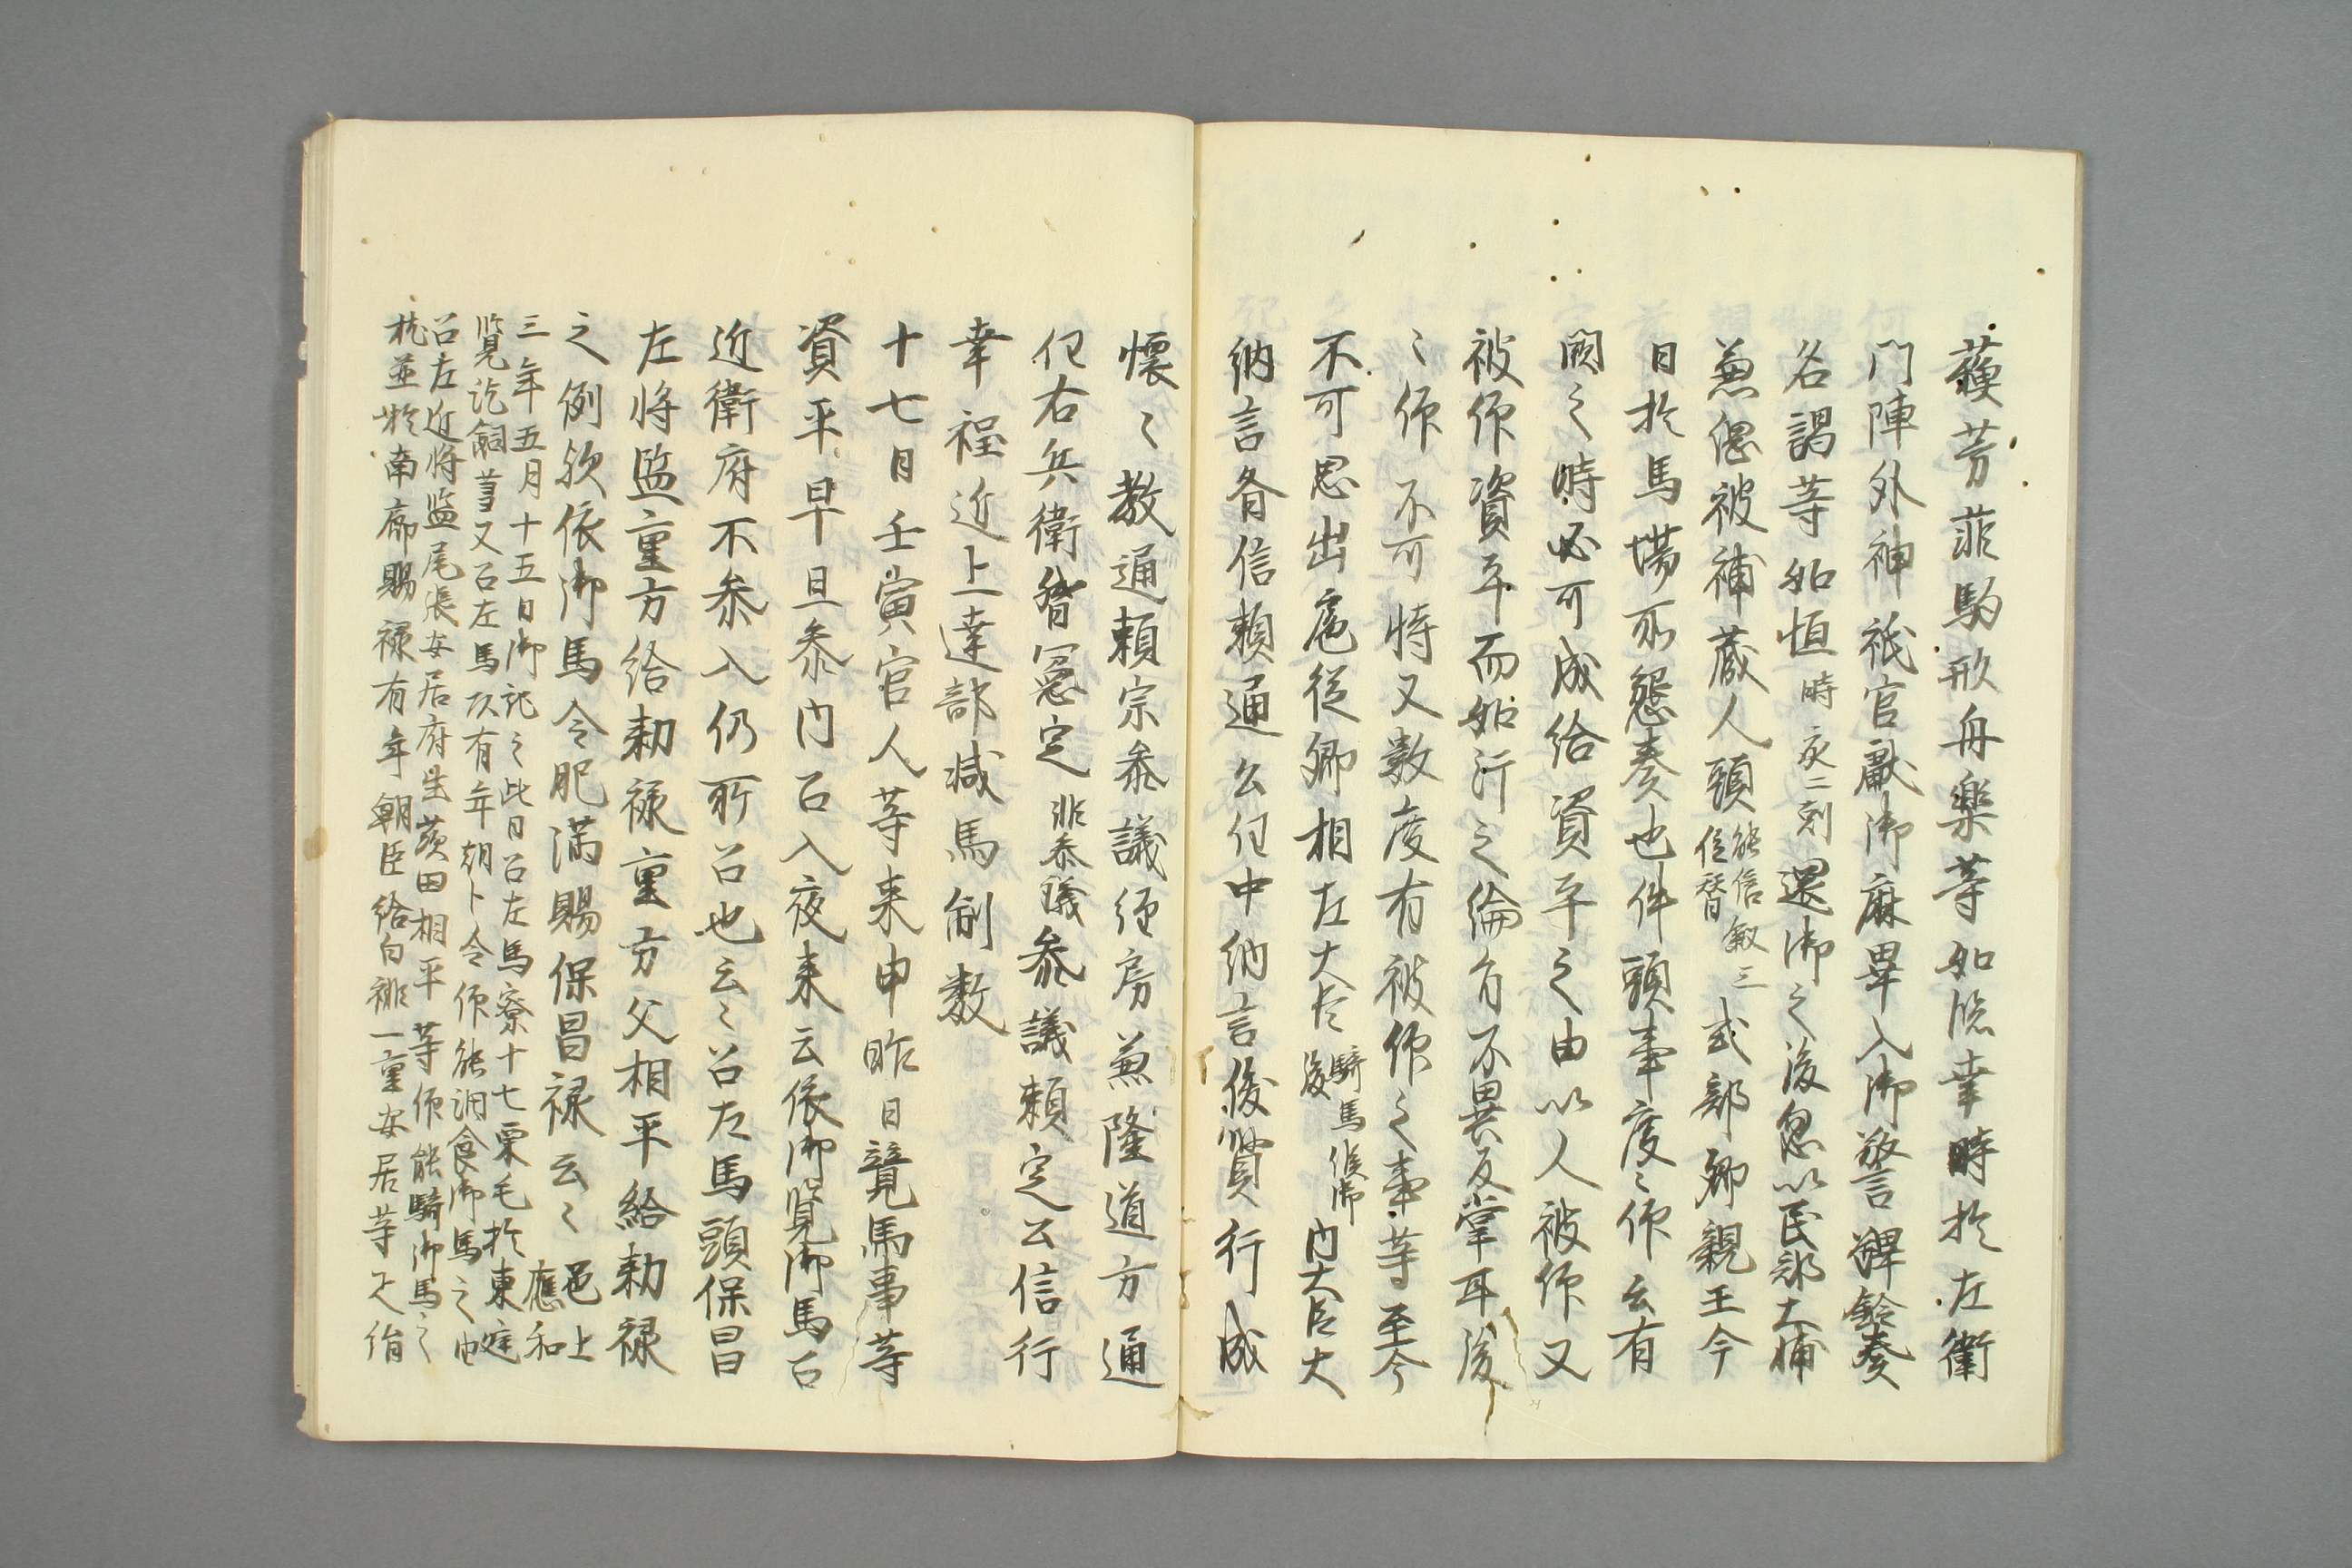 蘓芳菲駒形舟楽等如臨幸時於左衛
門陣外神祇官献御麻畢入御警蹕鈴奏
名謁等如恒時亥二刻還御之後忽以民部大輔
兼信被補蔵人頭能信叙三位替式部卿親王今
日於馬場所懇奏也件頭事度々仰云有
闕之時必可成給資平之由以人被仰又
被仰資平而如汗之綸旨不異反掌耳後
々仰不可恃又数度有被仰之事等至今
不可思出扈従卿相左大臣騎馬候御後内大臣大
納言斉信頼通公任中納言俊賢行成
懐々教通頼宗参議経房兼隆道方通
任右兵衛督憲定非参議参議頼定公信行
幸程近上達部減馬副数
十七日壬寅官人等来申昨日競馬事等
資平早旦参内召入夜来云依御覧御馬召
近衛府不参入仍所召也云々召左馬頭保昌
左将監重方給勅禄重方父相平給勅禄
之例欤依御馬令肥満賜保昌禄云々邑上應和
三年五月十五日御記之此日召左馬寮十七栗毛於東庭
覧訖飼等又召左馬頭有年朝臣令仰能調食御馬之由
召左近将監尾張安居府生茨田相平等仰能騎御馬之
状並於南廊賜禄有年朝臣給白褂一重安居等疋絹